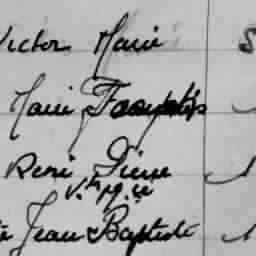 Victor Marie S
Marie François
René Pierre
V. M
Jean Baptiste